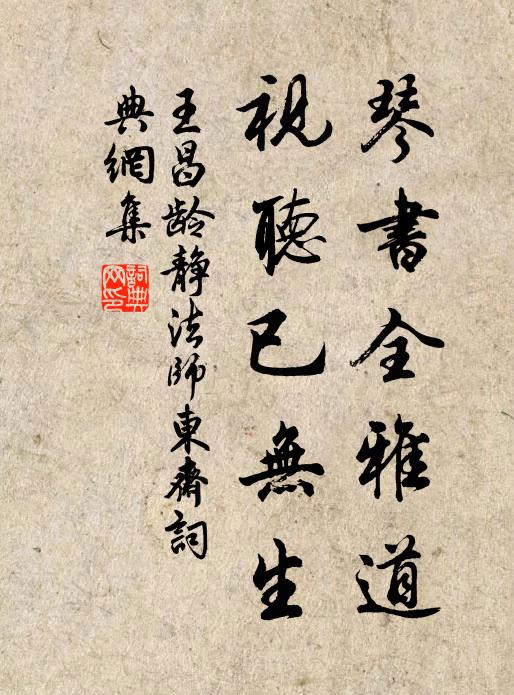 琴書全雅道
視聽已無生
王昌龄靜法師東齋詞
典網集
詞典网印